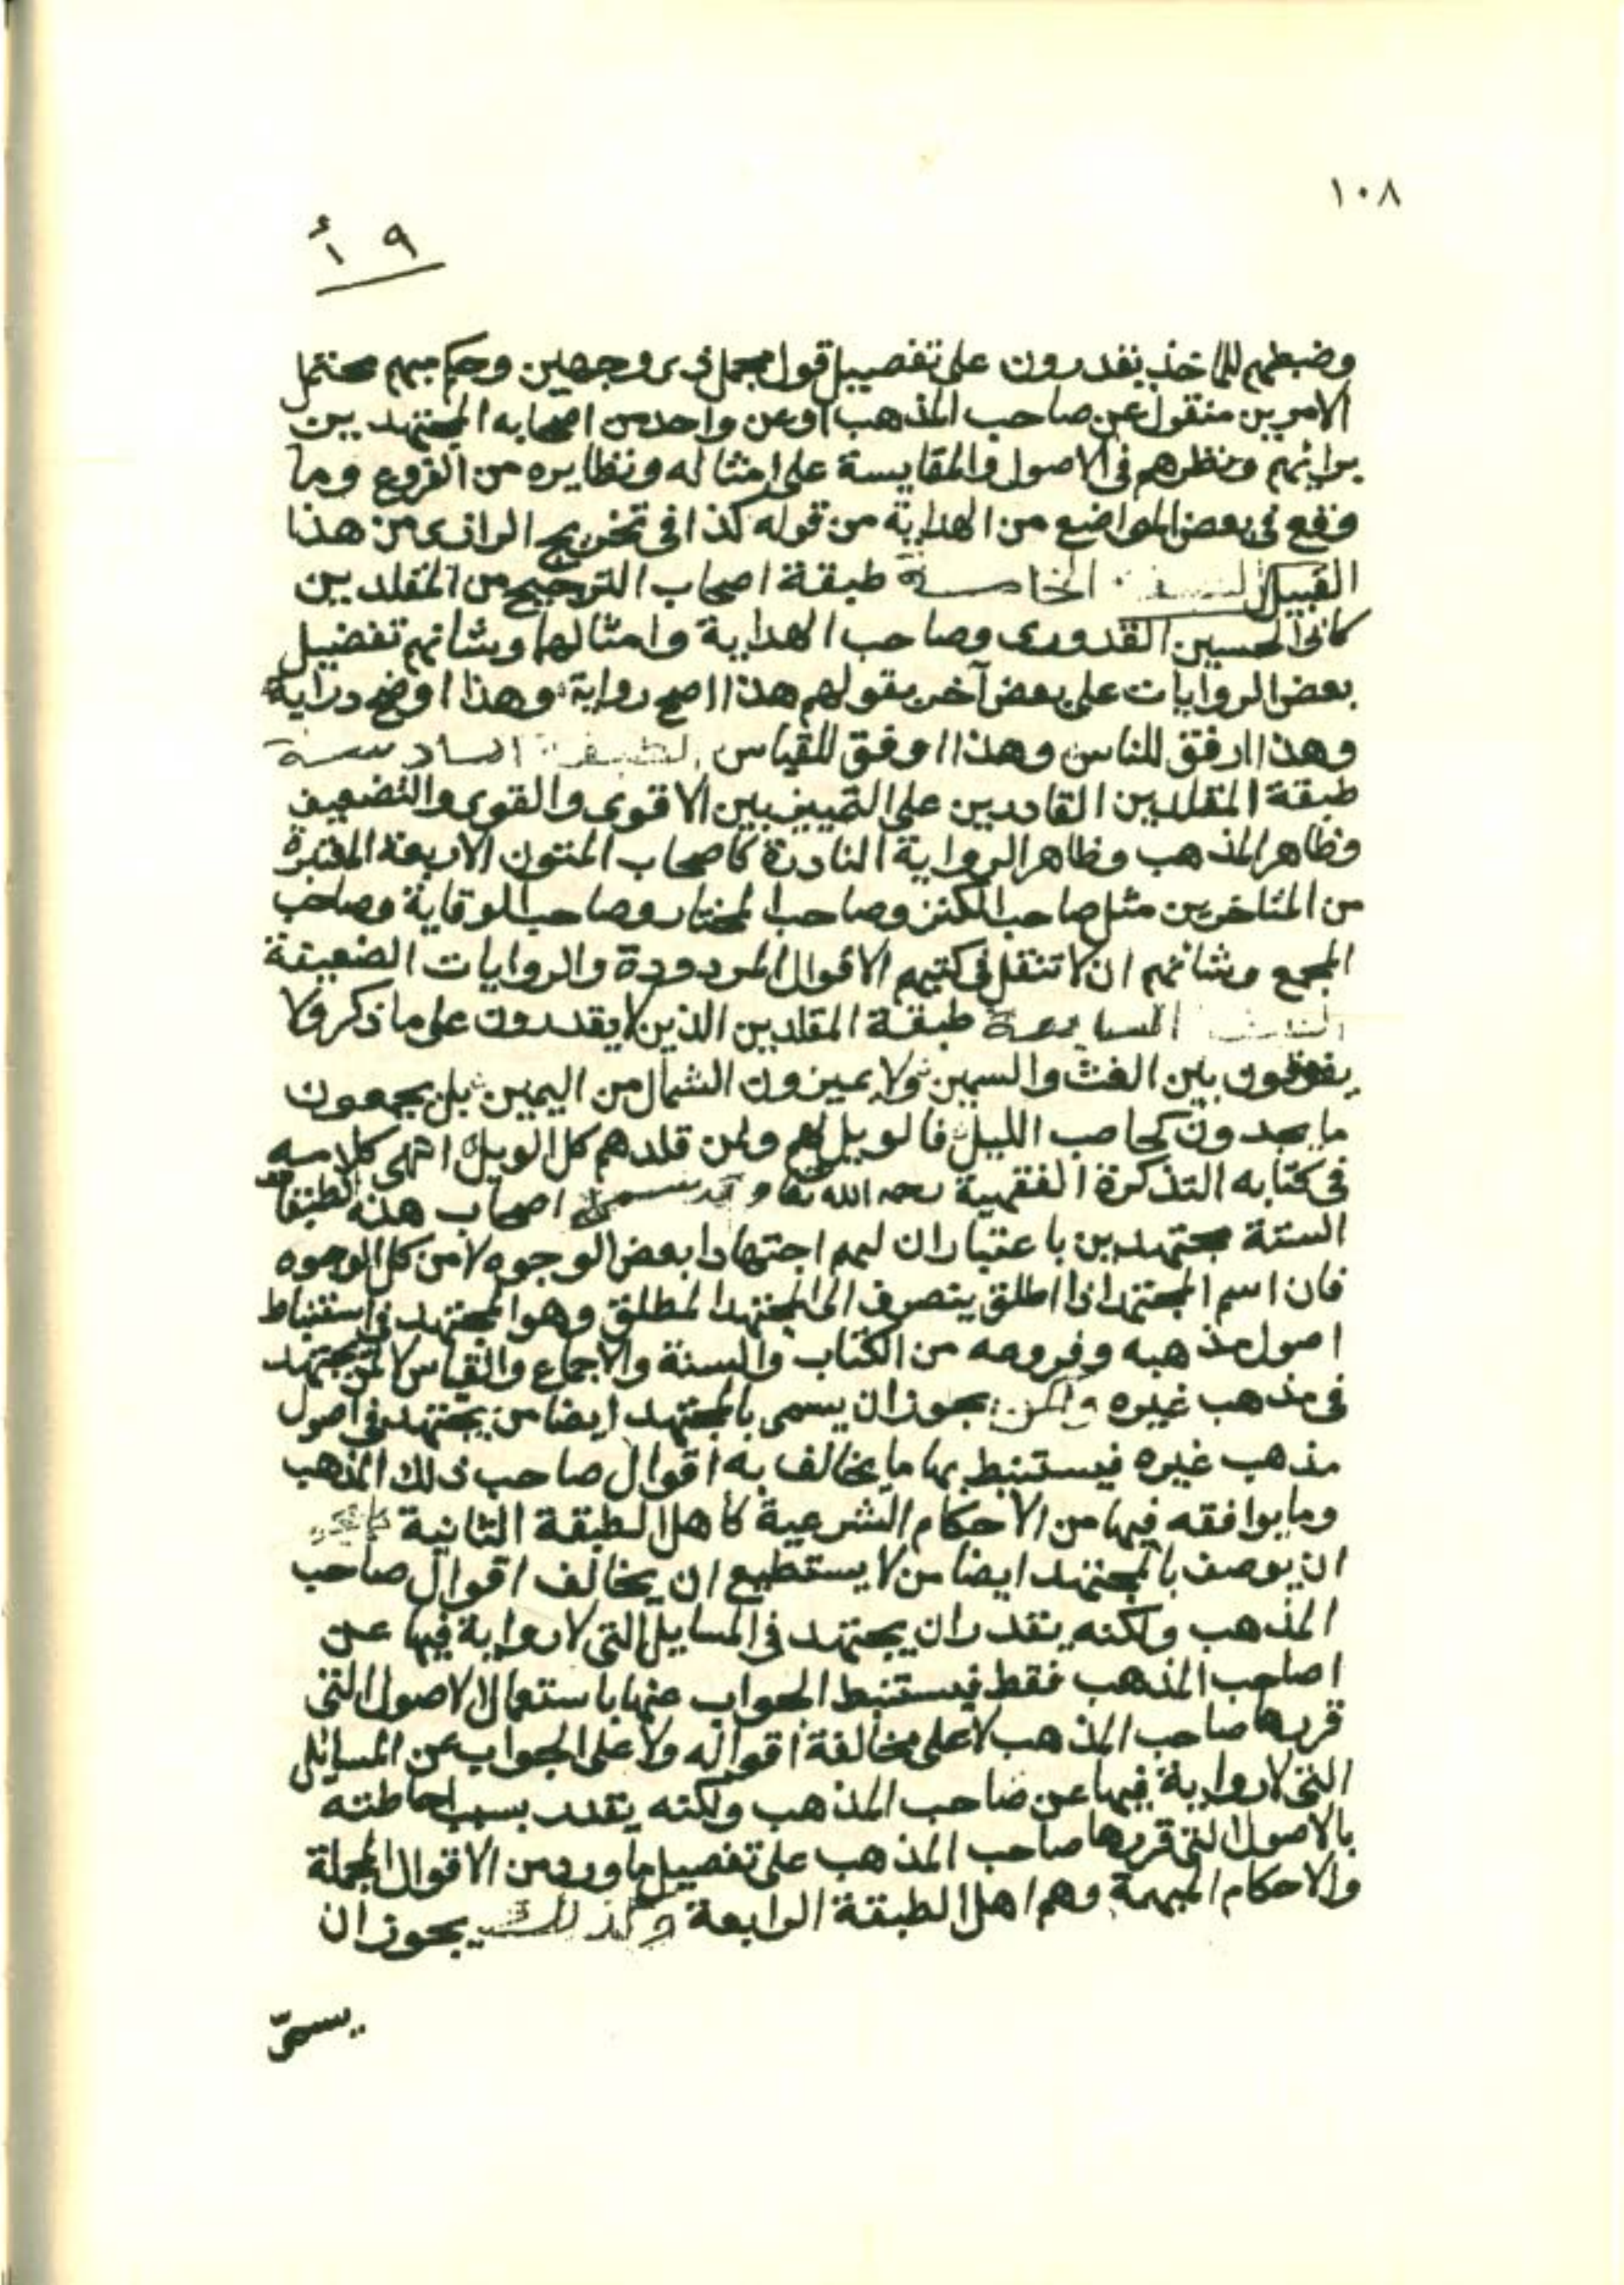 ١٠٨
٩ أ
وضبطهم للمآخذ يقدرون على تفصيل قول مجمل ذى وجهين وحكم مبهم محتمل
الامرين منقول عن صاحب المذهب اوعن واحد من اصحابه المجتهدين
برائهم ونظرهم فى الاصول والمقايسة على امثاله ونظايره من الفروع وما
وقع فى بعض المواضع من الهداية من قوله كذا فى تخريج الرازى من هذا
القبيل الطبقة الخامسة طبقة اصحاب الترجيح من المقلدين
كابى الحسين القدورى وصاحب الهداية وامثالهما وشانهم تفضيل
بعض الروايات على بعض آخر بقولهم هذا اصح رواية وهذا اوضح دراية
وهذا ارفق للناس وهذا اوفق للقياس الطبقة السادسة
طبقة المقلدين القادرين على التمييز بين الاقوى والقوى والضعيف
وظاهر المذهب وظاهر الرواية النادرة كاصحاب المتون الاربعة المعتبرة
من المتاخرين مثل صاحب الكنز وصاحب المختار وصاحب الوقاية وصاحب
المجمع وشانهم ان لا تنقل فى كتبهم الاقوال المردودة والروايات الضعيفة
الطبقة السابعة طبقة المقلدين الذين لا يقدرون على ما ذكر ولا
يفرقون بين الغث والسمين ولا يميزون الشمال من اليمين بل يجمعون
ما يجدون كحاطب الليل فالويل لهم ولمن قلدهم كل الويل انتهى كلامه
فى كتابه التذكرة الفقهية رحمه الله تعا اصحاب هذه الطبقات
الستة مجتهدين باعتبار ان لهم اجتهادا بعض الوجوه لا من كل الوجوه
فان اسم المجتهد اذا اطلق ينصرف الى المجتهد المطلق وهو المجتهد فى استنباط
اصول مذهبه وفروعه من الكتاب والسنة والاجماع والقياس لا لمن يجتهد
فى مذهب غيره ولكن يجوز ان يسمى بالمجتهد ايضا من يجتهد فى اصول
مذهب غيره فيستنبط بها ما يخالف به اقوال صاحب ذلك المذهب
وما يوافقه فيها من الاحكام الشرعية كاهل الطبقة الثانية
ان يوصف بالمجتهد ايضا من لا يستطيع ان يخالف اقوال صاحب
المذهب ولكنه يقدر ان يجتهد فى المسايل التى لا رواية فيها عن
اصاحب المذهب فقط فيستنبط الجواب عنها باستعمال الاصول التى
قررها صاحب المذهب لا على مخالفة اقواله ولا على الجواب عن المسائل
التى لا رواية فيها عن صاحب المذهب ولكنه يقدر بسبب احاطته
بالاصول التى قررها صاحب المذهب على تفصيل ما ورد من الاقوال المجملة
والاحكام المبهمة وهم اهل الطبقة الرابعة وكذلك يجوز ان
يسمى